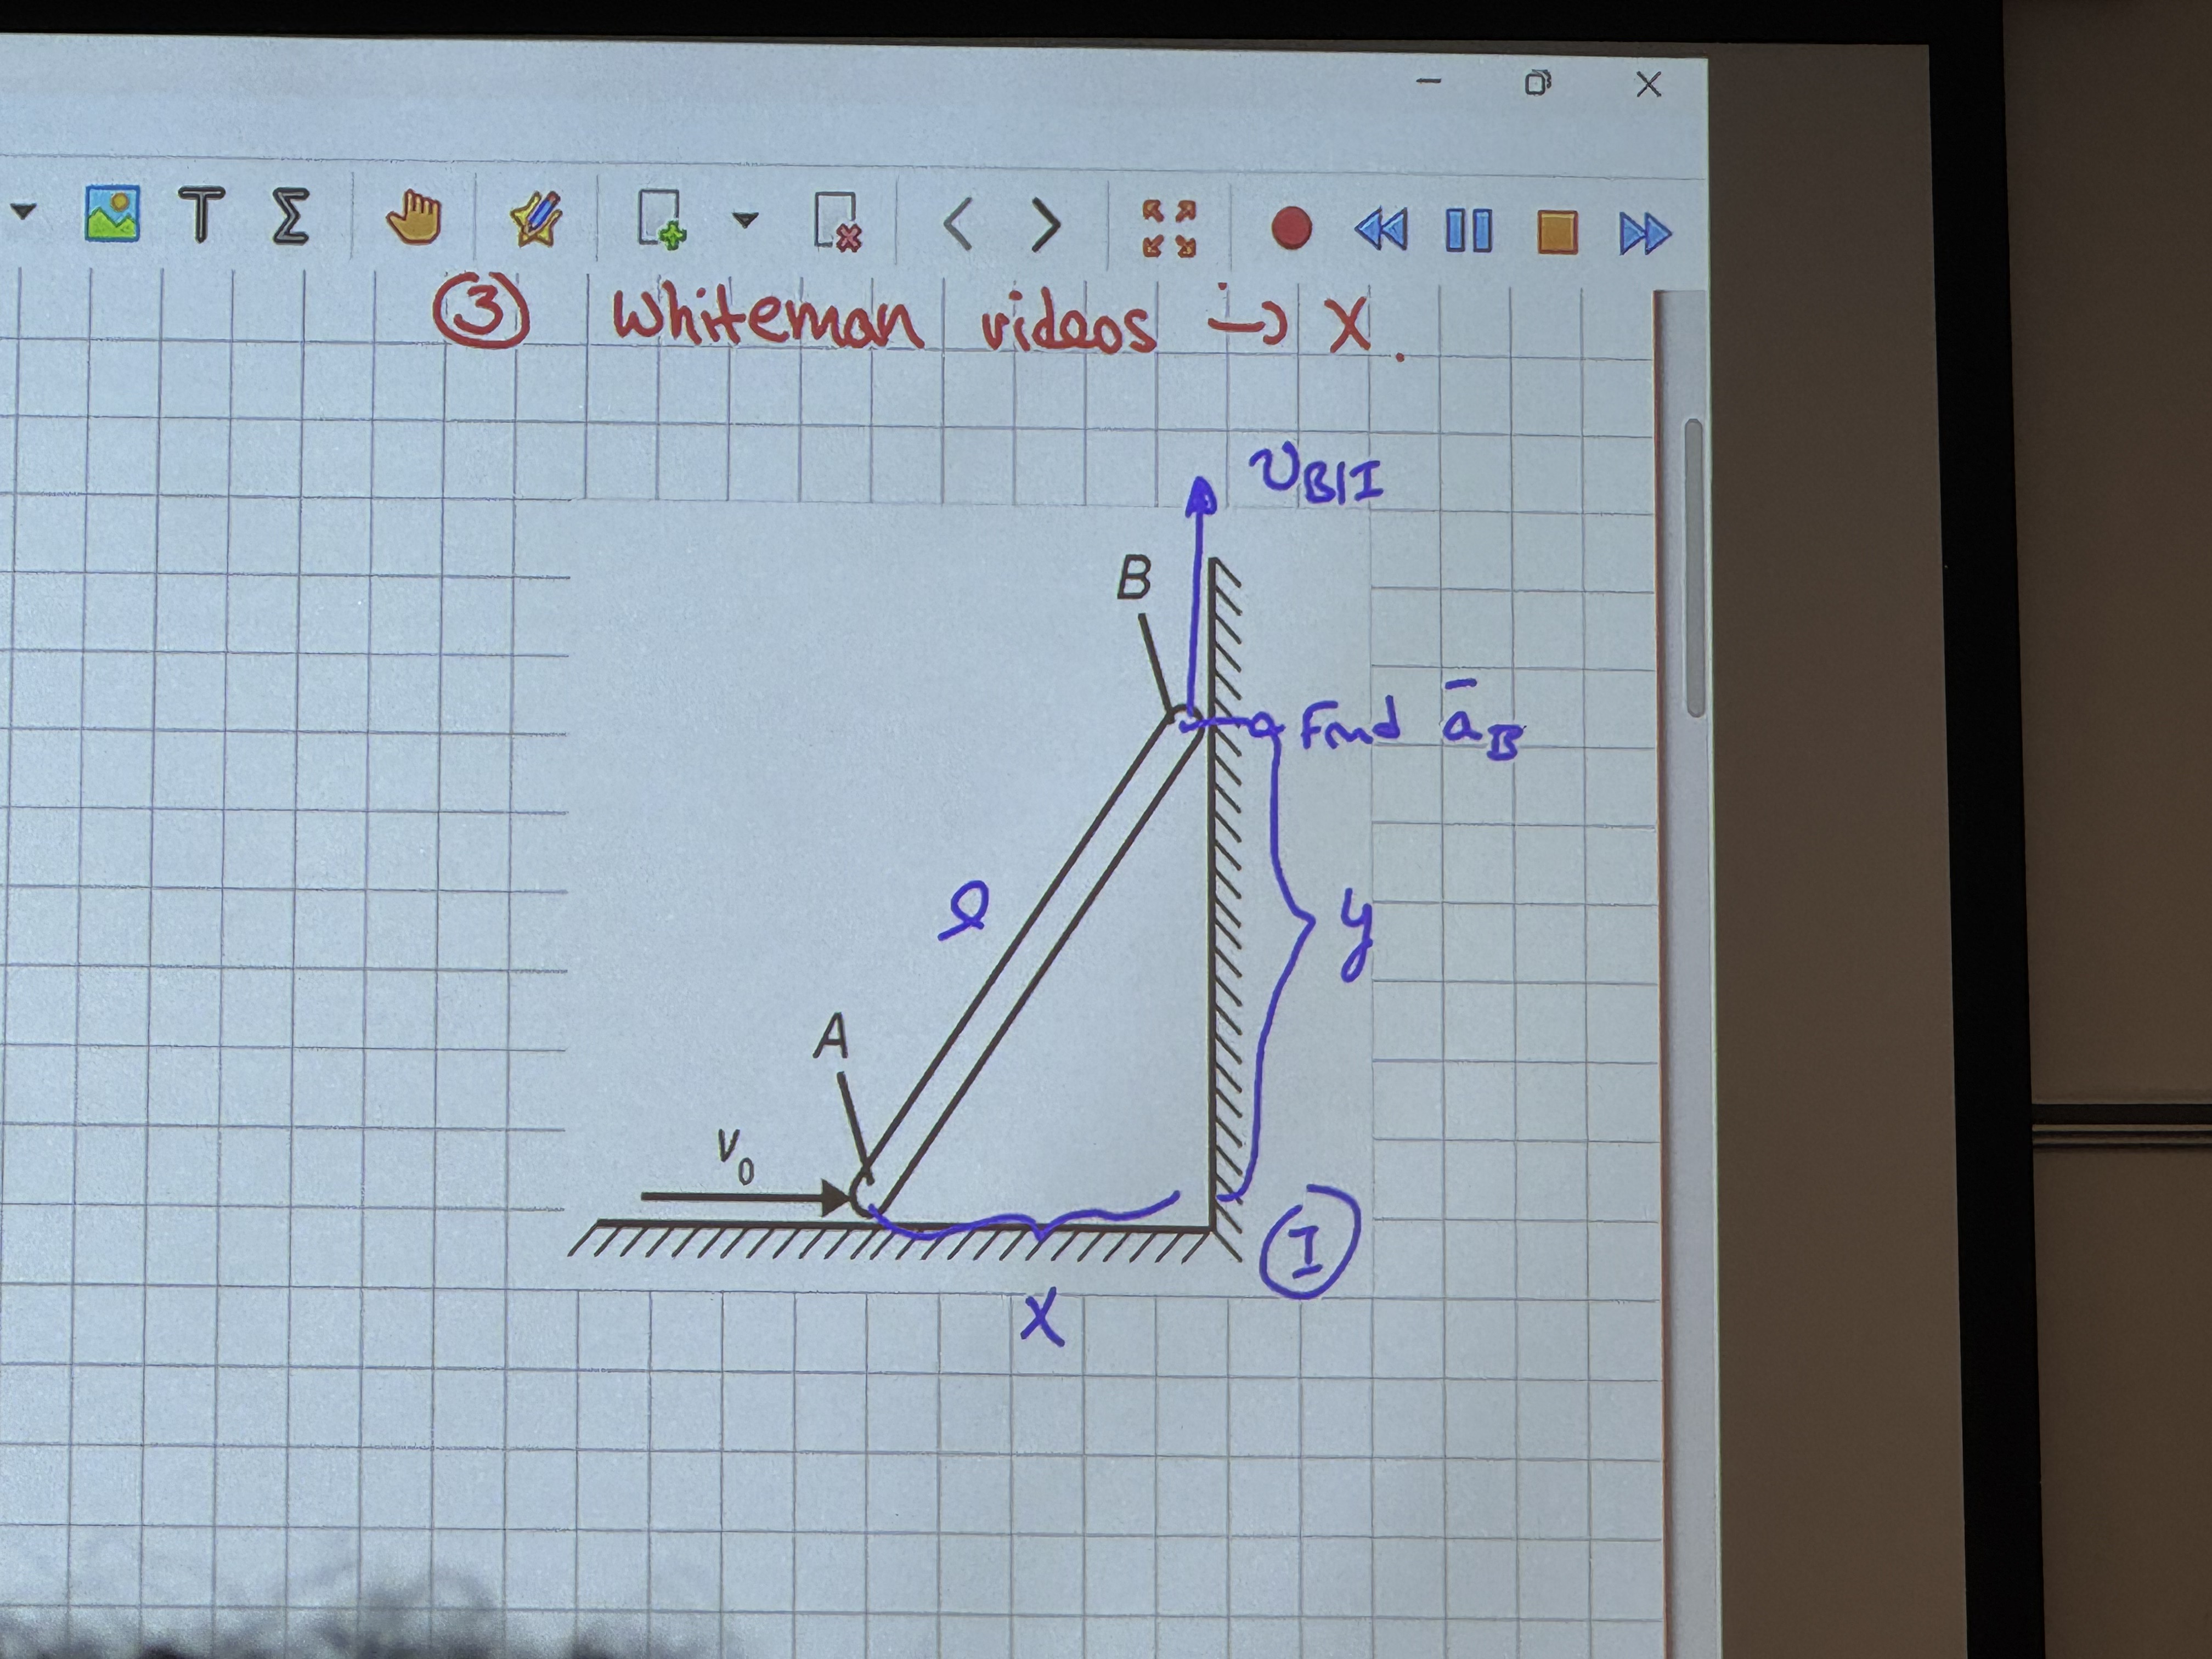 ③ Whiteman videos → X.
v_B/I
B
Find ā_B
l
y
A
v₀
I
X